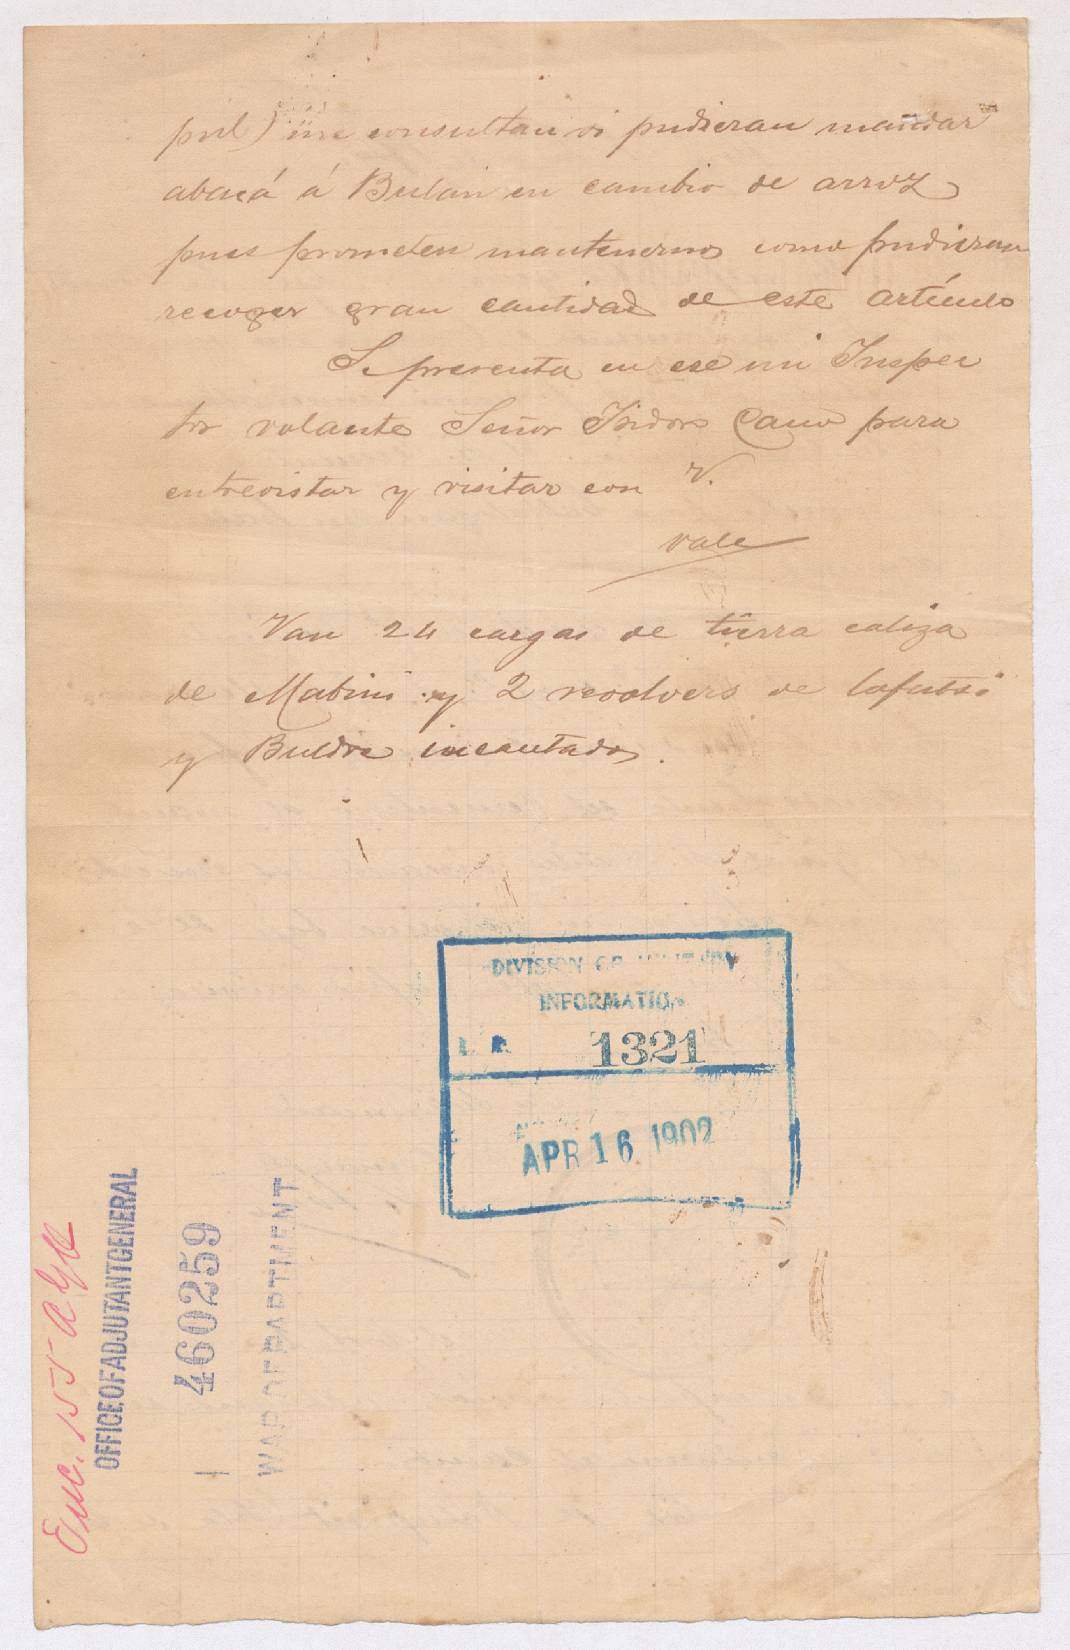 pil) me consultan si pudieran mandar
abacá á Bulan en cambio de arroz
pues prometen mantenernos como pudieran
recoger gran cantidad de este artículo
Se presenta en ese mi Inspec
tor volante Señor Isidoro Cano para
entrevistar y visitar con V.
vale
Van 24 cargas de tierra caliza
de Mabini y 2 revolvers de
y incautados.
DIVISION OF MILITARY
INFORMATION
L. R. 1321
APR 16 1902
Enc. 155 AGO
OFFICE OF ADJUTANT GENERAL
460259
WAR DEPARTMENT